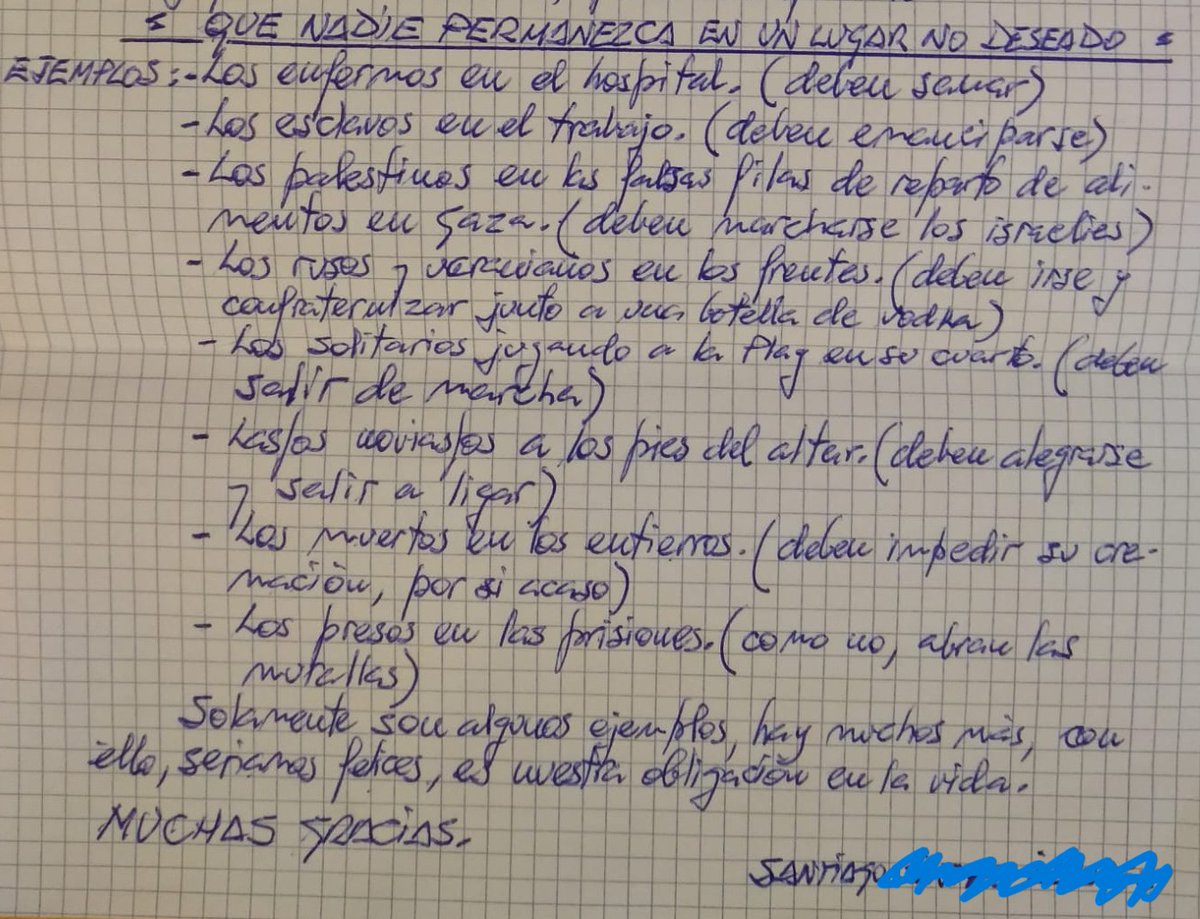 : QUE NADIE PERMANEZCA EN UN LUGAR NO DESEADO :
EJEMPLOS:-Los enfermos en el hospital. (deben sanar)
-Los esclavos en el trabajo. (deben emanciparse)
-Los palestinos en las falsas filas de reparto de ali-
mentos en Gaza. (deben marcharse los israelíes)
- Los rusos y ucranianos en los frentes. (deben irse y
confraternizar junto a una botella de vodka)
- Los solitarios jugando a la Play en su cuarto. (deben
salir de marcha)
- Las/os novias/os a los pies del altar. (deben alegrarse
y salir a ligar)
- Los muertos en los entierros. (deben impedir su cre-
mación, por si acaso)
- Los presos en las prisiones. (como no, abran las
murallas)
Solamente son algunos ejemplos, hay muchos más, con
ello, seríamos felices, es nuestra obligación en la vida.
MUCHAS GRACIAS.
SANTIAGO